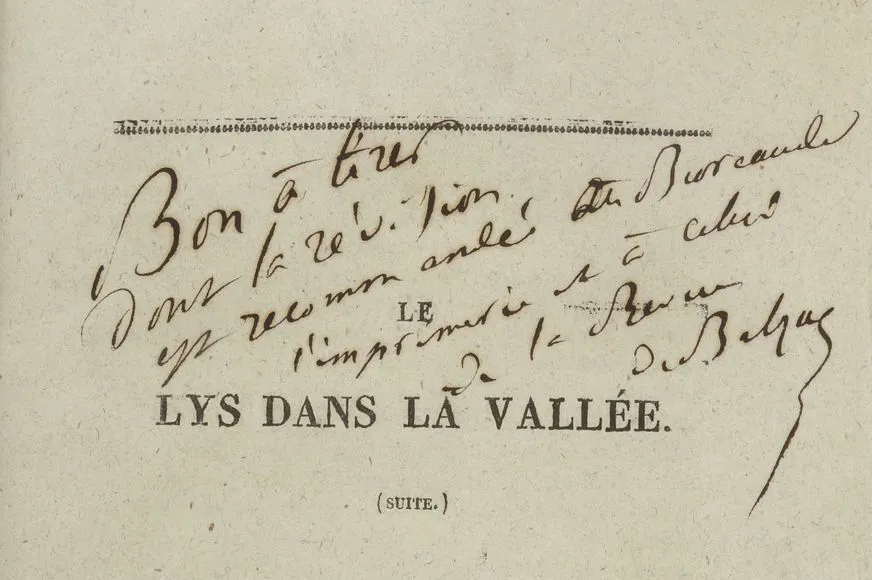 Bon à tirer
dont la révision,
est recommandée au Bureau de
l'imprimerie et à celui
de la Revue
de Balzac
LE
LYS DANS LA VALLÉE.
(SUITE.)